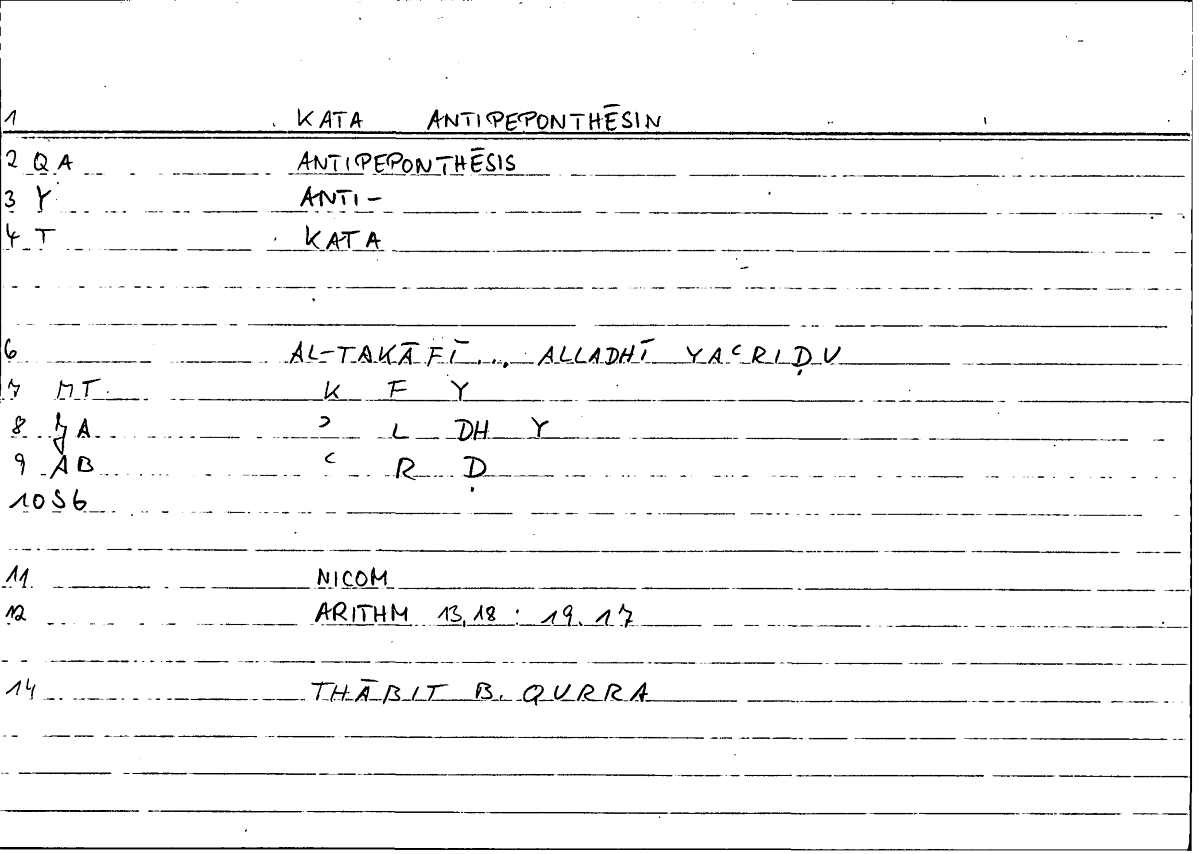 1 KATA ANTIPEPONTHĒSIN
2 QA ANTIPEPONTHĒSIS
3 Y ANTI-
4 T KATA
6 AL-TAKĀFĪ... ALLADHĪ YAʿRIḌU
7 MT K F Y
8 A ʾ L DH Y
9 AB ʿ R Ḍ
10 S6
11 NICOM
12 ARITHM 13,18 : 19.17
14 THĀBIT B. QURRA